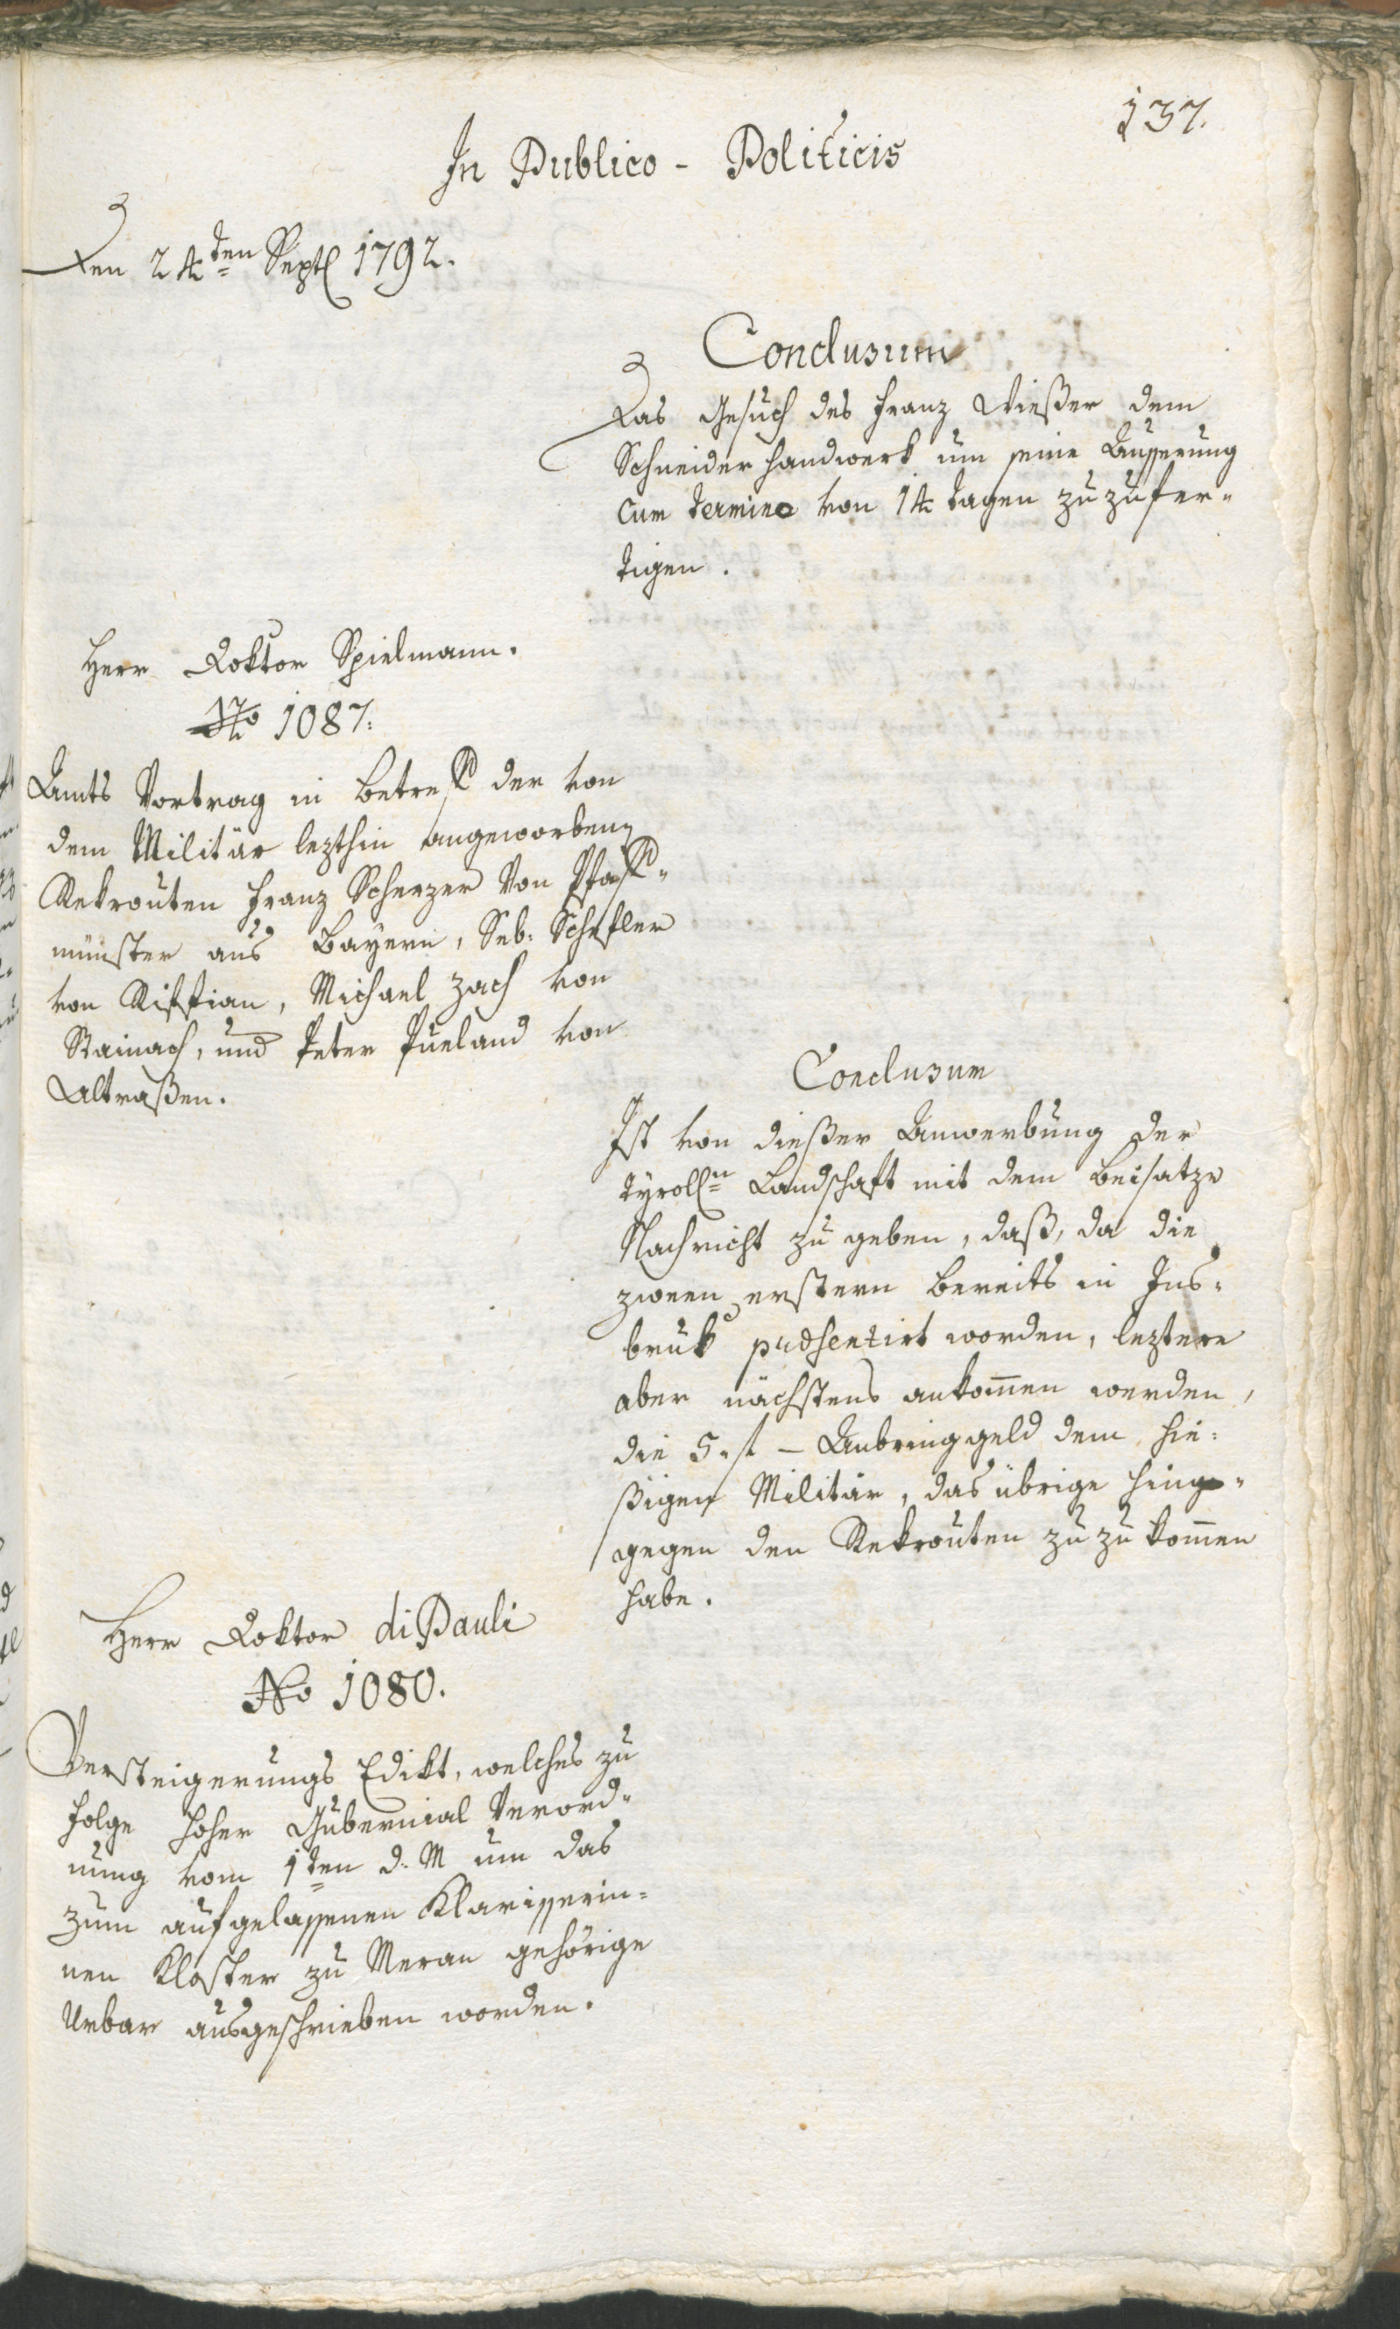 137.
In Publico - Politicis
Den 24ten Septl 1792.
Conclusum
Das Gesuch des Franz Wießer dem
Schneiderhandwerk um seine Äusserung
cum termino von 14 tagen zuzufer-
tigen.
Herr Doktor Spielmann.
No 1087.
Amts Vortrag in Betreff der von
dem Militär lezthin angeworben
Rekrouten Franz Scherzer von Pfaff-
münster aus Bayern, Seb: Schefler
von Riffian, Michael Zach von
Stainach, und Peter Pueland von
Altraßen.
Conclusum
Ist von dießer Anwerbung der
tyroll:n Landschaft mit dem Beisatze
Nachricht zu geben, daß, da die
zween erstern bereits in Ins-
bruk præsentirt worden, leztere
aber nächstens ankommen werden,
die 5 f - Anbringgeld dem hie-
ßigen Militär, das übrige hinge-
gegen den Rekrouten zuzukommen
habe.
Herr Doktor di Pauli
No 1080.
Versteigerungs Edikt, welches zu
folge hoher Gubernial Verord-
nung vom 1ten d. M um das
zum aufgelassenen Klarisserin-
nen Kloster zu Meran gehörige
Urbar ausgeschrieben worden.